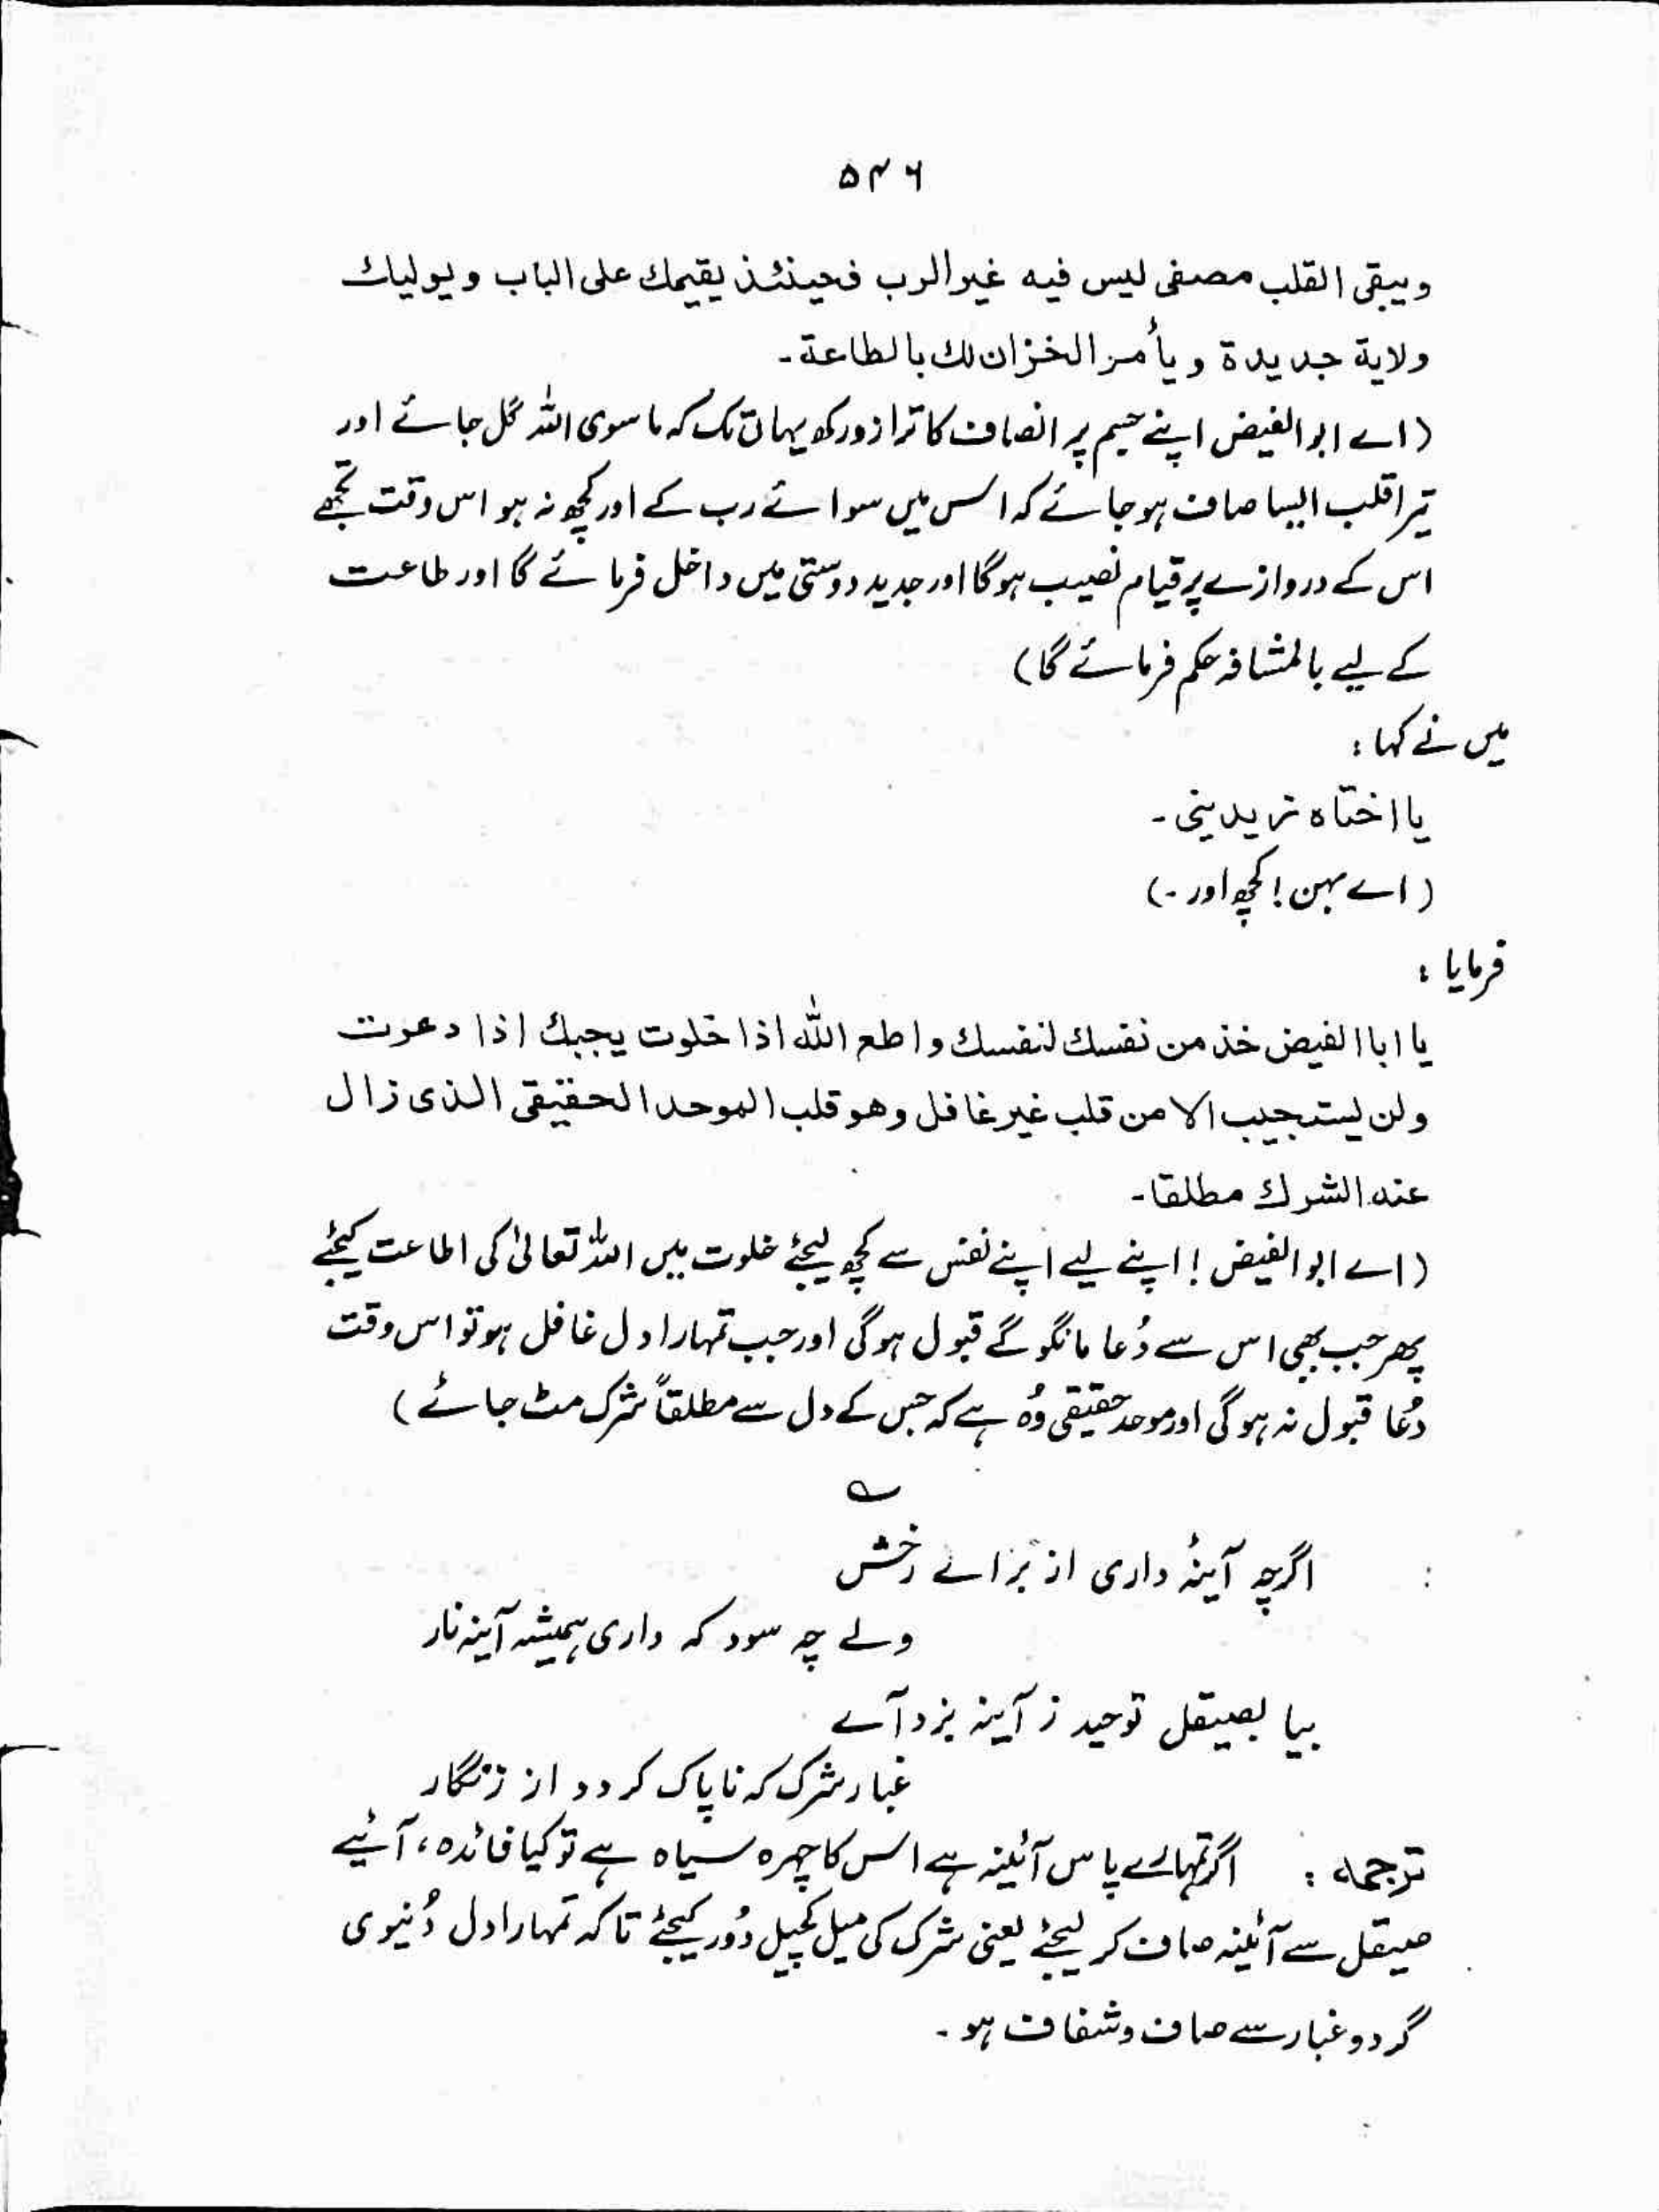 ۵۴۶
ويبقى القلب مصفى ليس فيه غير الرب فحينئذ يقيمك على الباب ويوليك
ولاية جديدة ويأمر الخزان لك بالطاعة۔
(اے ابو الفیض اپنے جسم پر انصاف کا ترازو رکھ یہاں تک کہ ماسوی اللہ گل جائے اور
تیرا قلب ایسا صاف ہو جائے کہ اس میں سوائے رب کے اور کچھ نہ ہو اس وقت تجھے
اس کے دروازے پر قیام نصیب ہوگا اور جدید دوستی میں داخل فرمائے گا اور طاعت
کے لیے بالمشافہ حکم فرمائے گا)
میں نے کہا :
يا اختاه تزيديني۔
(اے بہن! کچھ اور۔)
فرمایا :
يا ابا الفيض خذ من نفسك لنفسك واطع الله اذا خلوت يجبك اذا دعوت
ولن يستجيب الا من قلب غير غافل وهو قلب الموحد الحقيقى الذى زال
عنه الشرك مطلقا۔
(اے ابو الفیض! اپنے لیے اپنے نفس سے کچھ لیجئے خلوت میں اللہ تعالیٰ کی اطاعت کیجئے
پھر جب بھی اس سے دُعا مانگو گے قبول ہوگی اور جب تمہارا دل غافل ہو تو اس وقت
دُعا قبول نہ ہوگی اور موحد حقیقی وُہ ہے کہ جس کے دل سے مطلقاً شرک مٹ جائے)
؎
اگرچہ آینۂ داری از برائے رخش
ولے چہ سود کہ داری ہمیشہ آینہ تار
بیا بصیقل توحید ز آینہ بزدآے
غبار شرک کہ تا پاک گردد از زنگار
ترجمہ : اگر تمہارے پاس آئینہ ہے اس کا چہرہ سیاہ ہے تو کیا فائدہ، آئیے
صیقل سے آئینہ صاف کر لیجئے یعنی شرک کی میل کچیل دُور کیجئے تاکہ تمہارا دل دُنیوی
گرد و غبار سے صاف و شفاف ہو۔